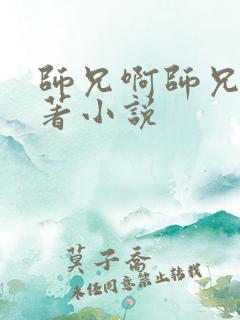 師兄啊師兄
著小說
莫子喬
未經同意禁止轉載